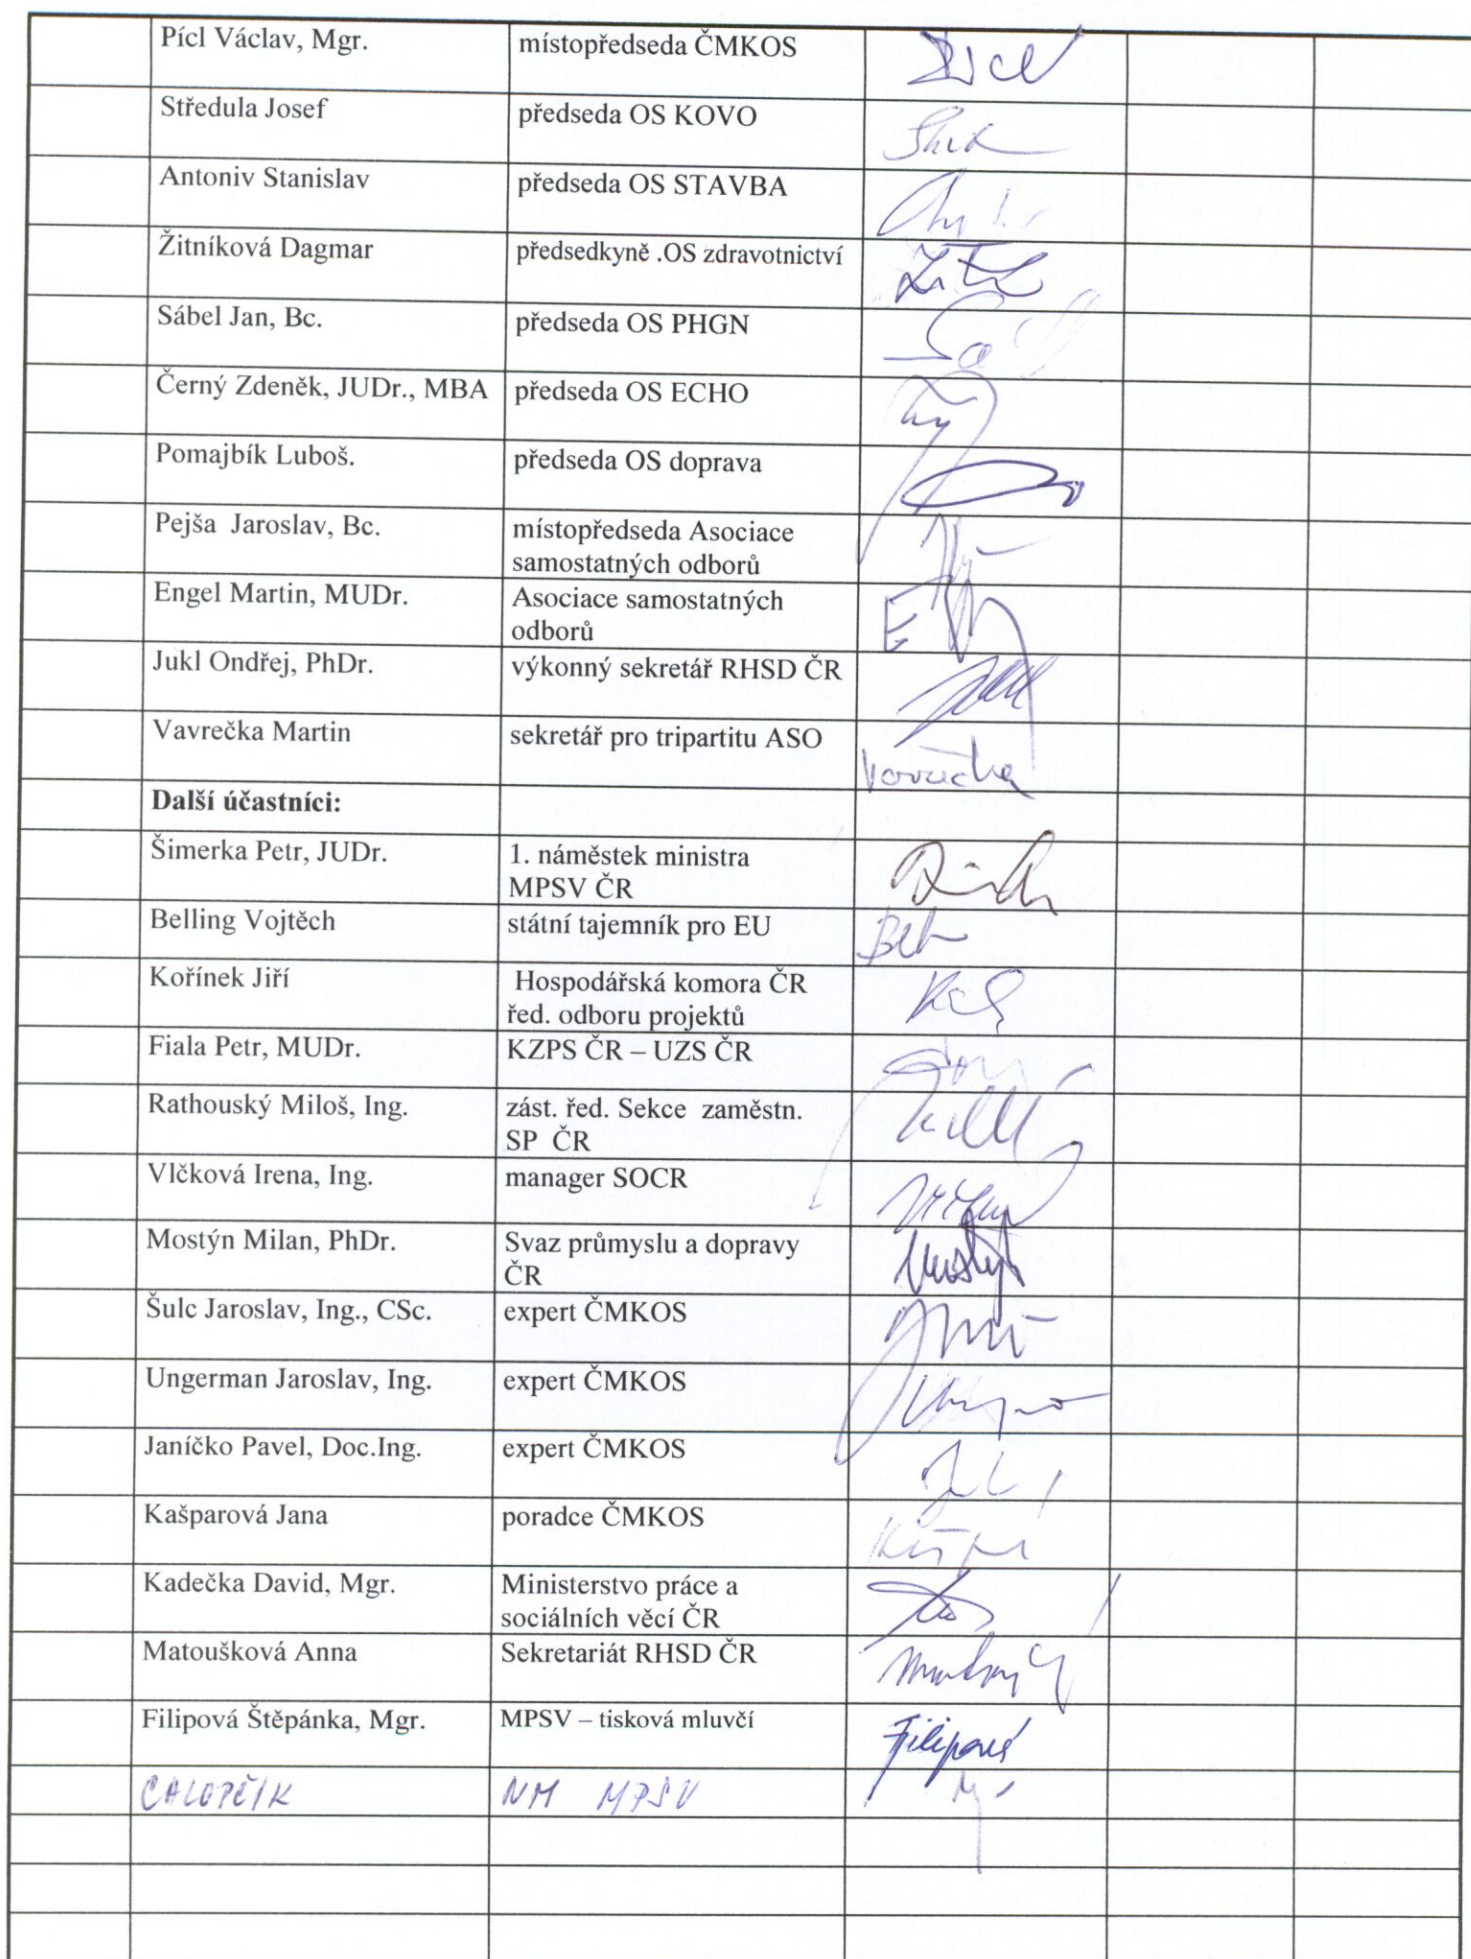 Pícl Václav, Mgr. místopředseda ČMKOS
Středula Josef předseda OS KOVO
Antoniv Stanislav předseda OS STAVBA
Žitníková Dagmar předsedkyně .OS zdravotnictví
Sábel Jan, Bc. předseda OS PHGN
Černý Zdeněk, JUDr., MBA předseda OS ECHO
Pomajbík Luboš. předseda OS doprava
Pejša Jaroslav, Bc. místopředseda Asociace
samostatných odborů
Engel Martin, MUDr. Asociace samostatných
odborů
Jukl Ondřej, PhDr. výkonný sekretář RHSD ČR
Vavrečka Martin sekretář pro tripartitu ASO
Další účastníci:
Šimerka Petr, JUDr. 1. náměstek ministra
MPSV ČR
Belling Vojtěch státní tajemník pro EU
Kořínek Jiří Hospodářská komora ČR
řed. odboru projektů
Fiala Petr, MUDr. KZPS ČR – UZS ČR
Rathouský Miloš, Ing. zást. řed. Sekce zaměstn.
SP ČR
Vlčková Irena, Ing. manager SOCR
Mostýn Milan, PhDr. Svaz průmyslu a dopravy
ČR
Šulc Jaroslav, Ing., CSc. expert ČMKOS
Ungerman Jaroslav, Ing. expert ČMKOS
Janíčko Pavel, Doc.Ing. expert ČMKOS
Kašparová Jana poradce ČMKOS
Kadečka David, Mgr. Ministerstvo práce a
sociálních věcí ČR
Matoušková Anna Sekretariát RHSD ČR
Filipová Štěpánka, Mgr. MPSV – tisková mluvčí Filipová
NM MPSV